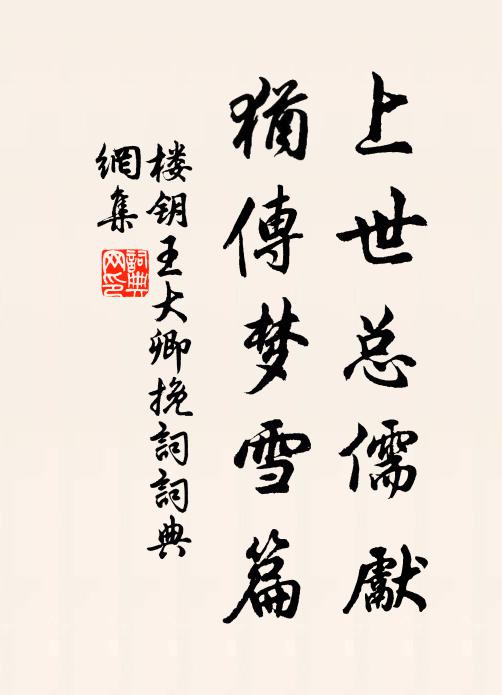 上世总儒献
犹傳梦雪篇
楼钥王大卿挽詞詞典
網集
詞典网印